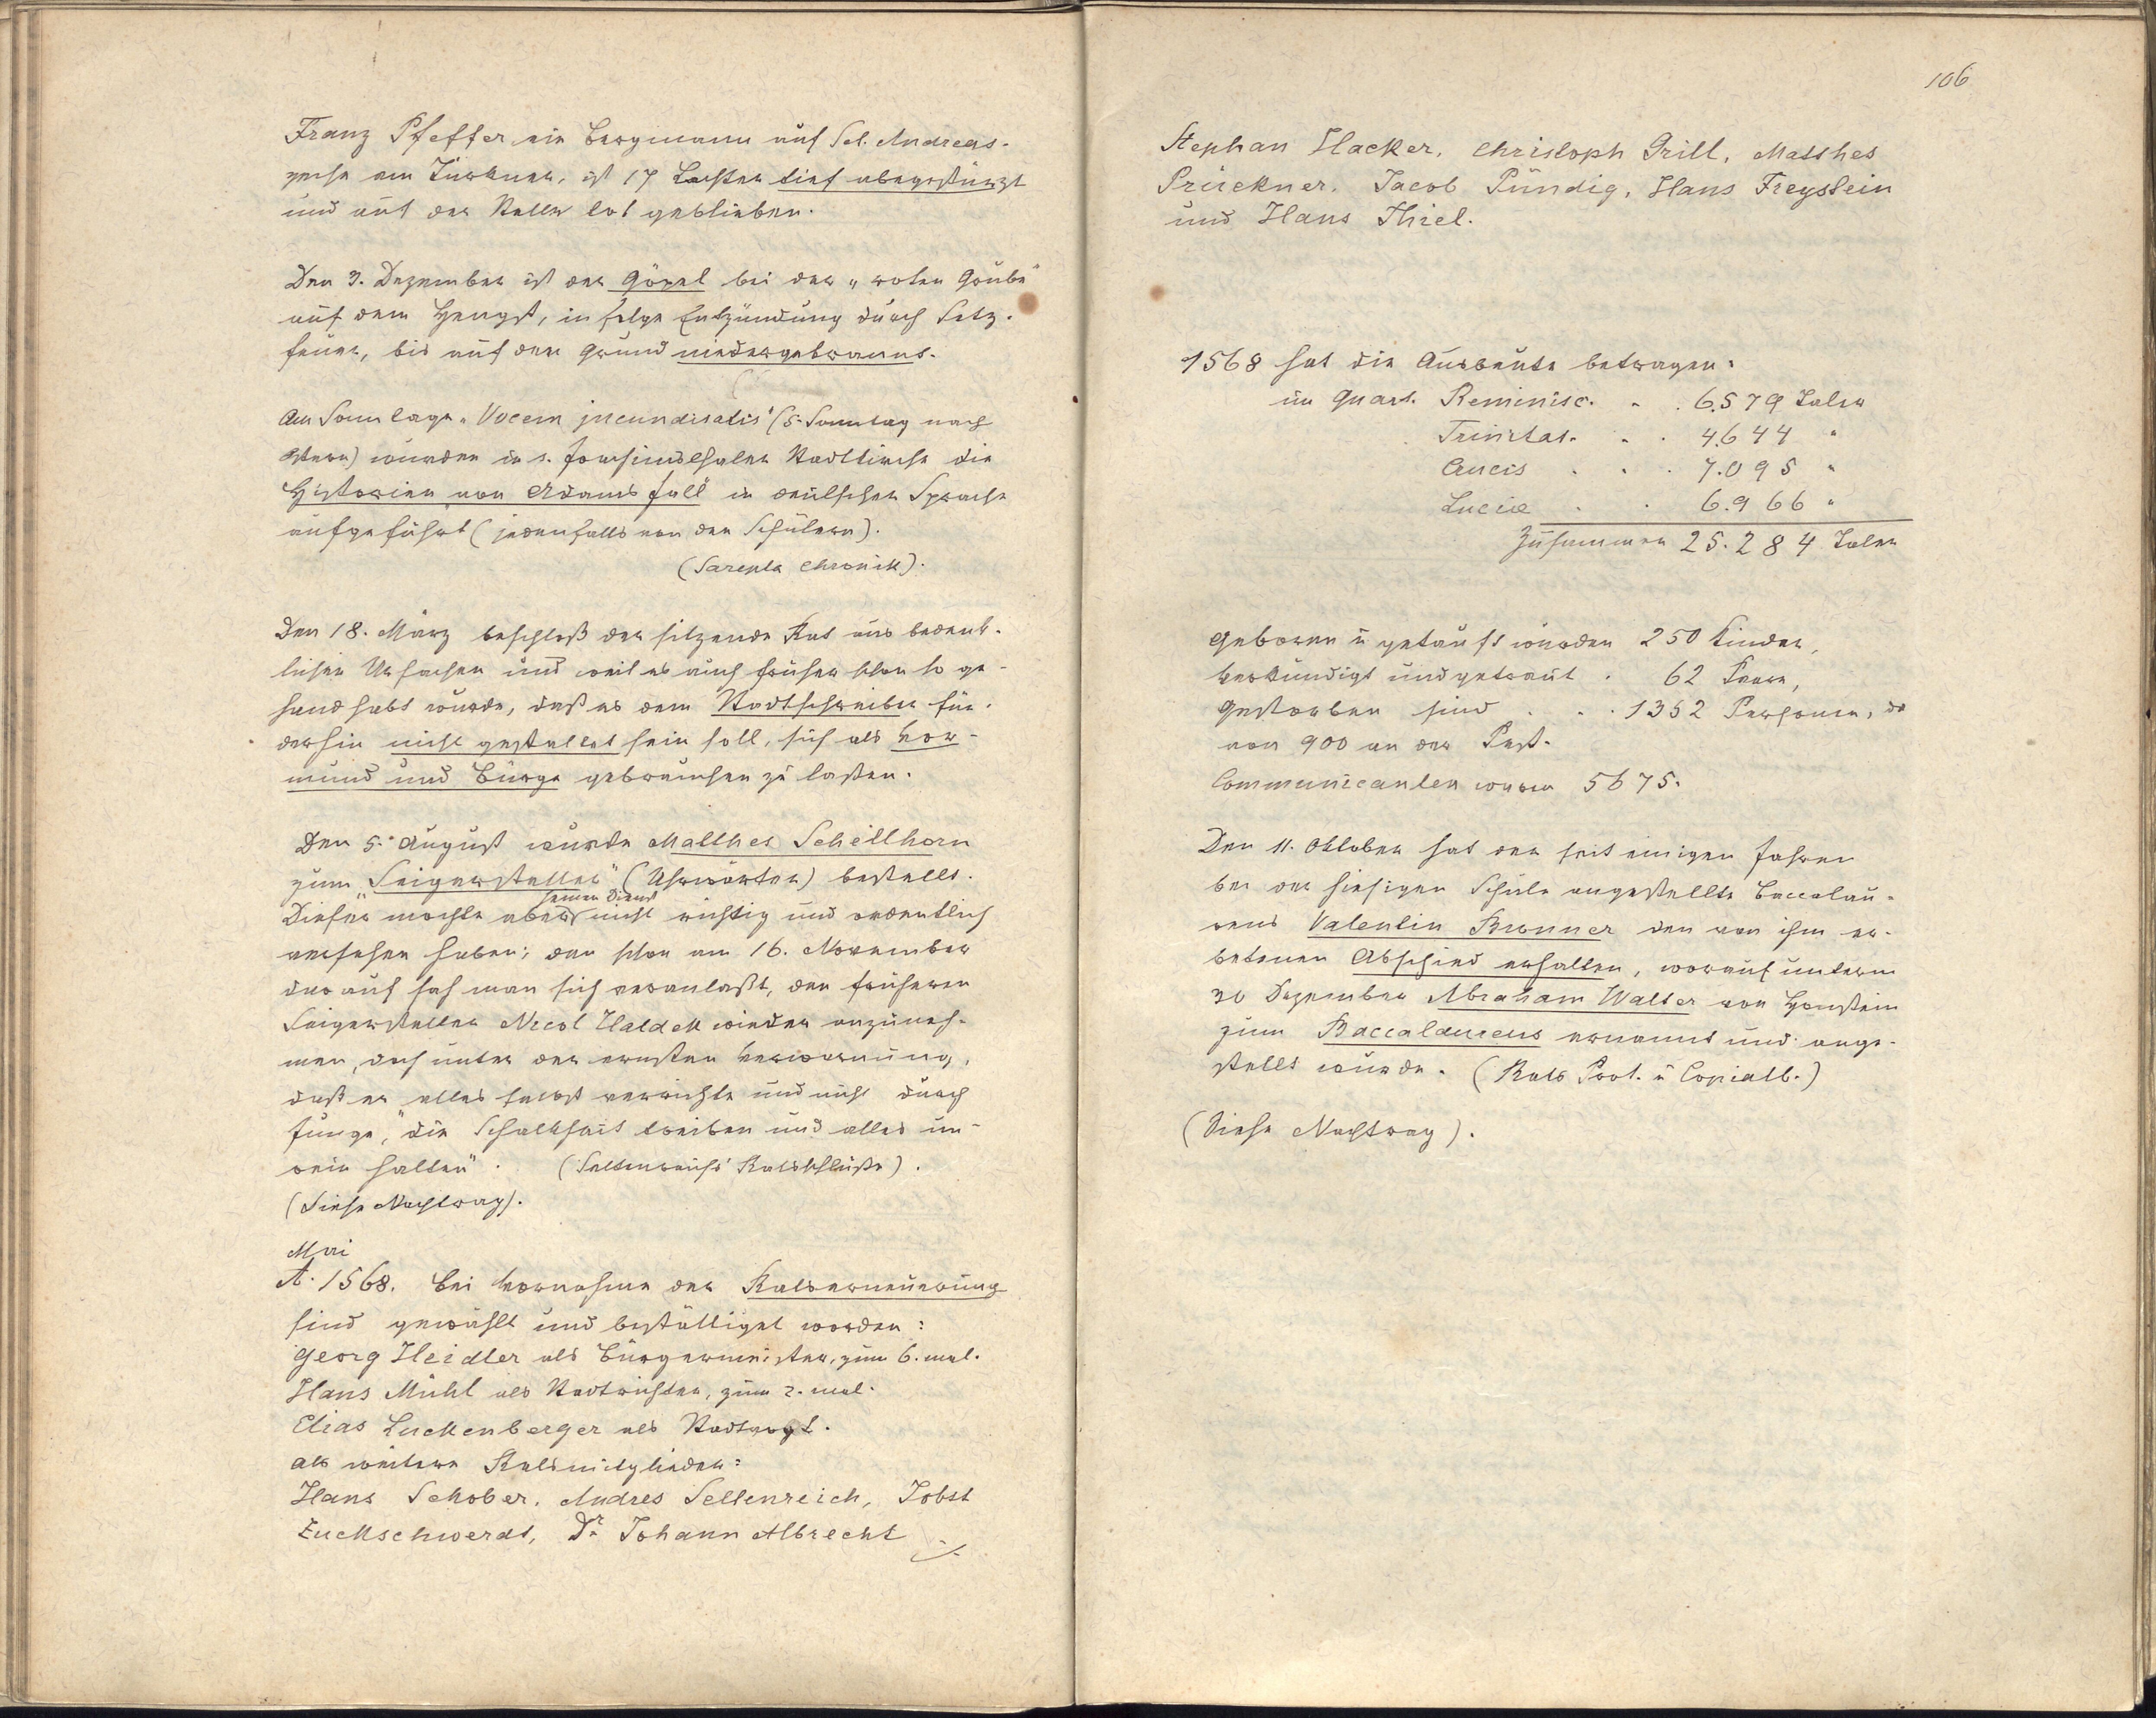 Franz Pfeffer ein Bergmann auf Sct. Andreas-
zeche am Türkner, ist 17 Lachter tief abgestürzt
und auf der Stelle tot geblieben.
Den 3. Dezember ist der Göpel bei der „roten Grube"
auf dem Hengst, in folge Entzündung durch Setz-
feuer, bis auf den Grund niedergebrannt.
Am Sonntage „Vocem jucunditatis" (5. Sonntag nach
Ostern) wurden in s. Joachimsthaler Stadtkirche die
Historien von Adams Fall in deutscher Sprache
aufgeführt (jedenfalls von den Schülern).
(Sarepta Chronik).
Den 18. März beschloß der sitzende Rat aus bedenk-
lichen Ursachen und weil es auch früher schon so ge-
handhabt wurde, daß es dem Stadtschreiber für-
derhin nicht gestattet sein soll, sich als Vor-
mund und Bürge gebrauchen zu laßen.
Den 5. August wurde Matthes Schellhorn
zum „Seigersteller" (Uhrwärter) bestellt.
Dieser mochte aber seinen Dienst nicht richtig und ordentlich
versehen haben; den schon am 16. November
darauf sah man sich veranlaßt, den früheren
Seigersteller Nicol Haldek wieder anzuneh-
men, doch unter der ernsten Verwarnung,
daß er alles selbst verrichte und nicht durch
Junge, „die Schalkheit treiben und alles un-
rein halten". (Seltenreichs Ratsschlüße).
(Siehe Nachtrag).
Mai
A. 1568. Bei Vornahme der Ratserneuerung
sind gewählt und bestättiget worden:
Georg Heidler als Bürgermeister, zum 6. mal.
Hans Mühl als Stadtrichter, zum 2. mal.
Elias Luckenberger als Stadtvogt.
als weitere Ratsmitglieder:
Hans Schober, Andres Seltenreich, Jobst
Zuckschwerdt, Dr. Johann Albrecht ./.
106
Stephan Hacker, Christoph Grill, Matthes
Prückner, Jacob Pündig, Hans Freystein
und Hans Thiel.
1568 hat die Ausbeute betragen:
im Quart. Reminisc. . . 6.579 Taler
Trinitat. . . 4.644 "
Crucis . . . 7.095 "
Luciæ . . 6.966 "
Zusammen 25.284 Taler
Geboren u getauft wurden 250 Kinder,
verkündigt und getraut . 62 Paare,
Gestorben sind . . . 1352 Personen, da
von 900 an der Pest.
Communicanten waren 5675.
Den 11. Oktober hat der seit einigen Jahren
bei der hiesigen Schule angestellte Baccalau-
reus Valentin Brunner den von ihm er-
betenen Abschied erhalten, worauf unterm
30 Dezember Abraham Walter von
zum Baccalaureus ernannt und ange-
stellt wurde. (Rats Prot. u Copialb.)
(Siehe Nachtrag).